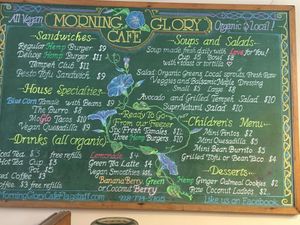 All Vegan
MORNING GLORY
CAFE
Organic & Local!
Sandwiches
Regular Hemp Burger $9
Deluxe Hemp Burger $11
Tempeh Club $11
Pesto Tofu Sandwich $9
House Specialties
Blue Corn Tamale with Beans $9
The Burro $9
MoGlo Tacos $10
Vegan Quesadilla $9
Drinks (all organic)
Iced Tea $
Coffee $3
Lemonade $4
Green Tea Latte $4
Vegan Smoothies
Banana Berry, Green
or Coconut Berry
MorningGloryCafeFlagstaff.com
Ready To Go
From our Freezer
Six Fresh Tamales
Three Hemp Burgers
Soups and Salads
Soup made fresh daily with Love for You!
Cup $5 Bowl
Salad Organic Greens Local sprouts Fresh Raw
Veggies and Balsamic/Maple Dressing
Small $5 Large $8
Avocado and Grilled Tempeh Salad $10
Natural Salad $10
Children's Menu
Mini Pintos $2
Mini Quesadilla $5
Mini Bean Burrito $5
Grilled Tofu or Bean Taco $4
Desserts
Hemp Ginger Oatmeal Cookies $2
Rice Coconut Salad
Like us on Facebook